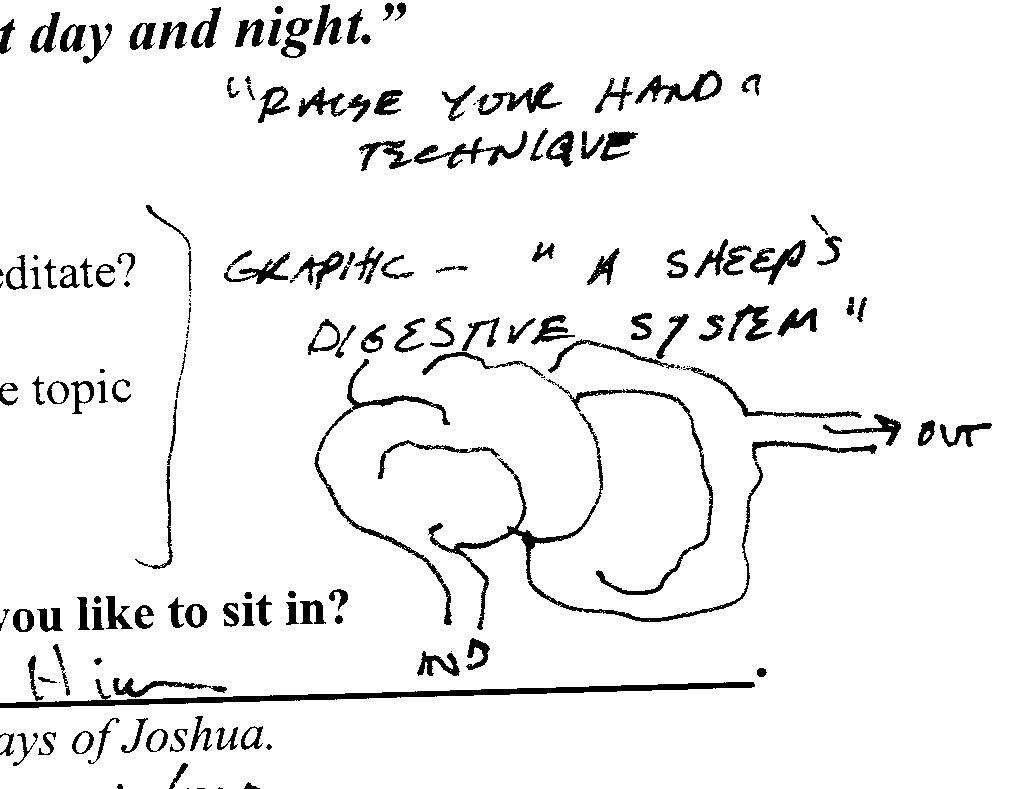 t day and night.”
"RAISE YOUR HAND"
TECHNIQUE
editate?
GRAPHIC - "A SHEEP'S
DIGESTIVE SYSTEM"
e topic
OUT
you like to sit in?
IN
Him
.
ays of Joshua.